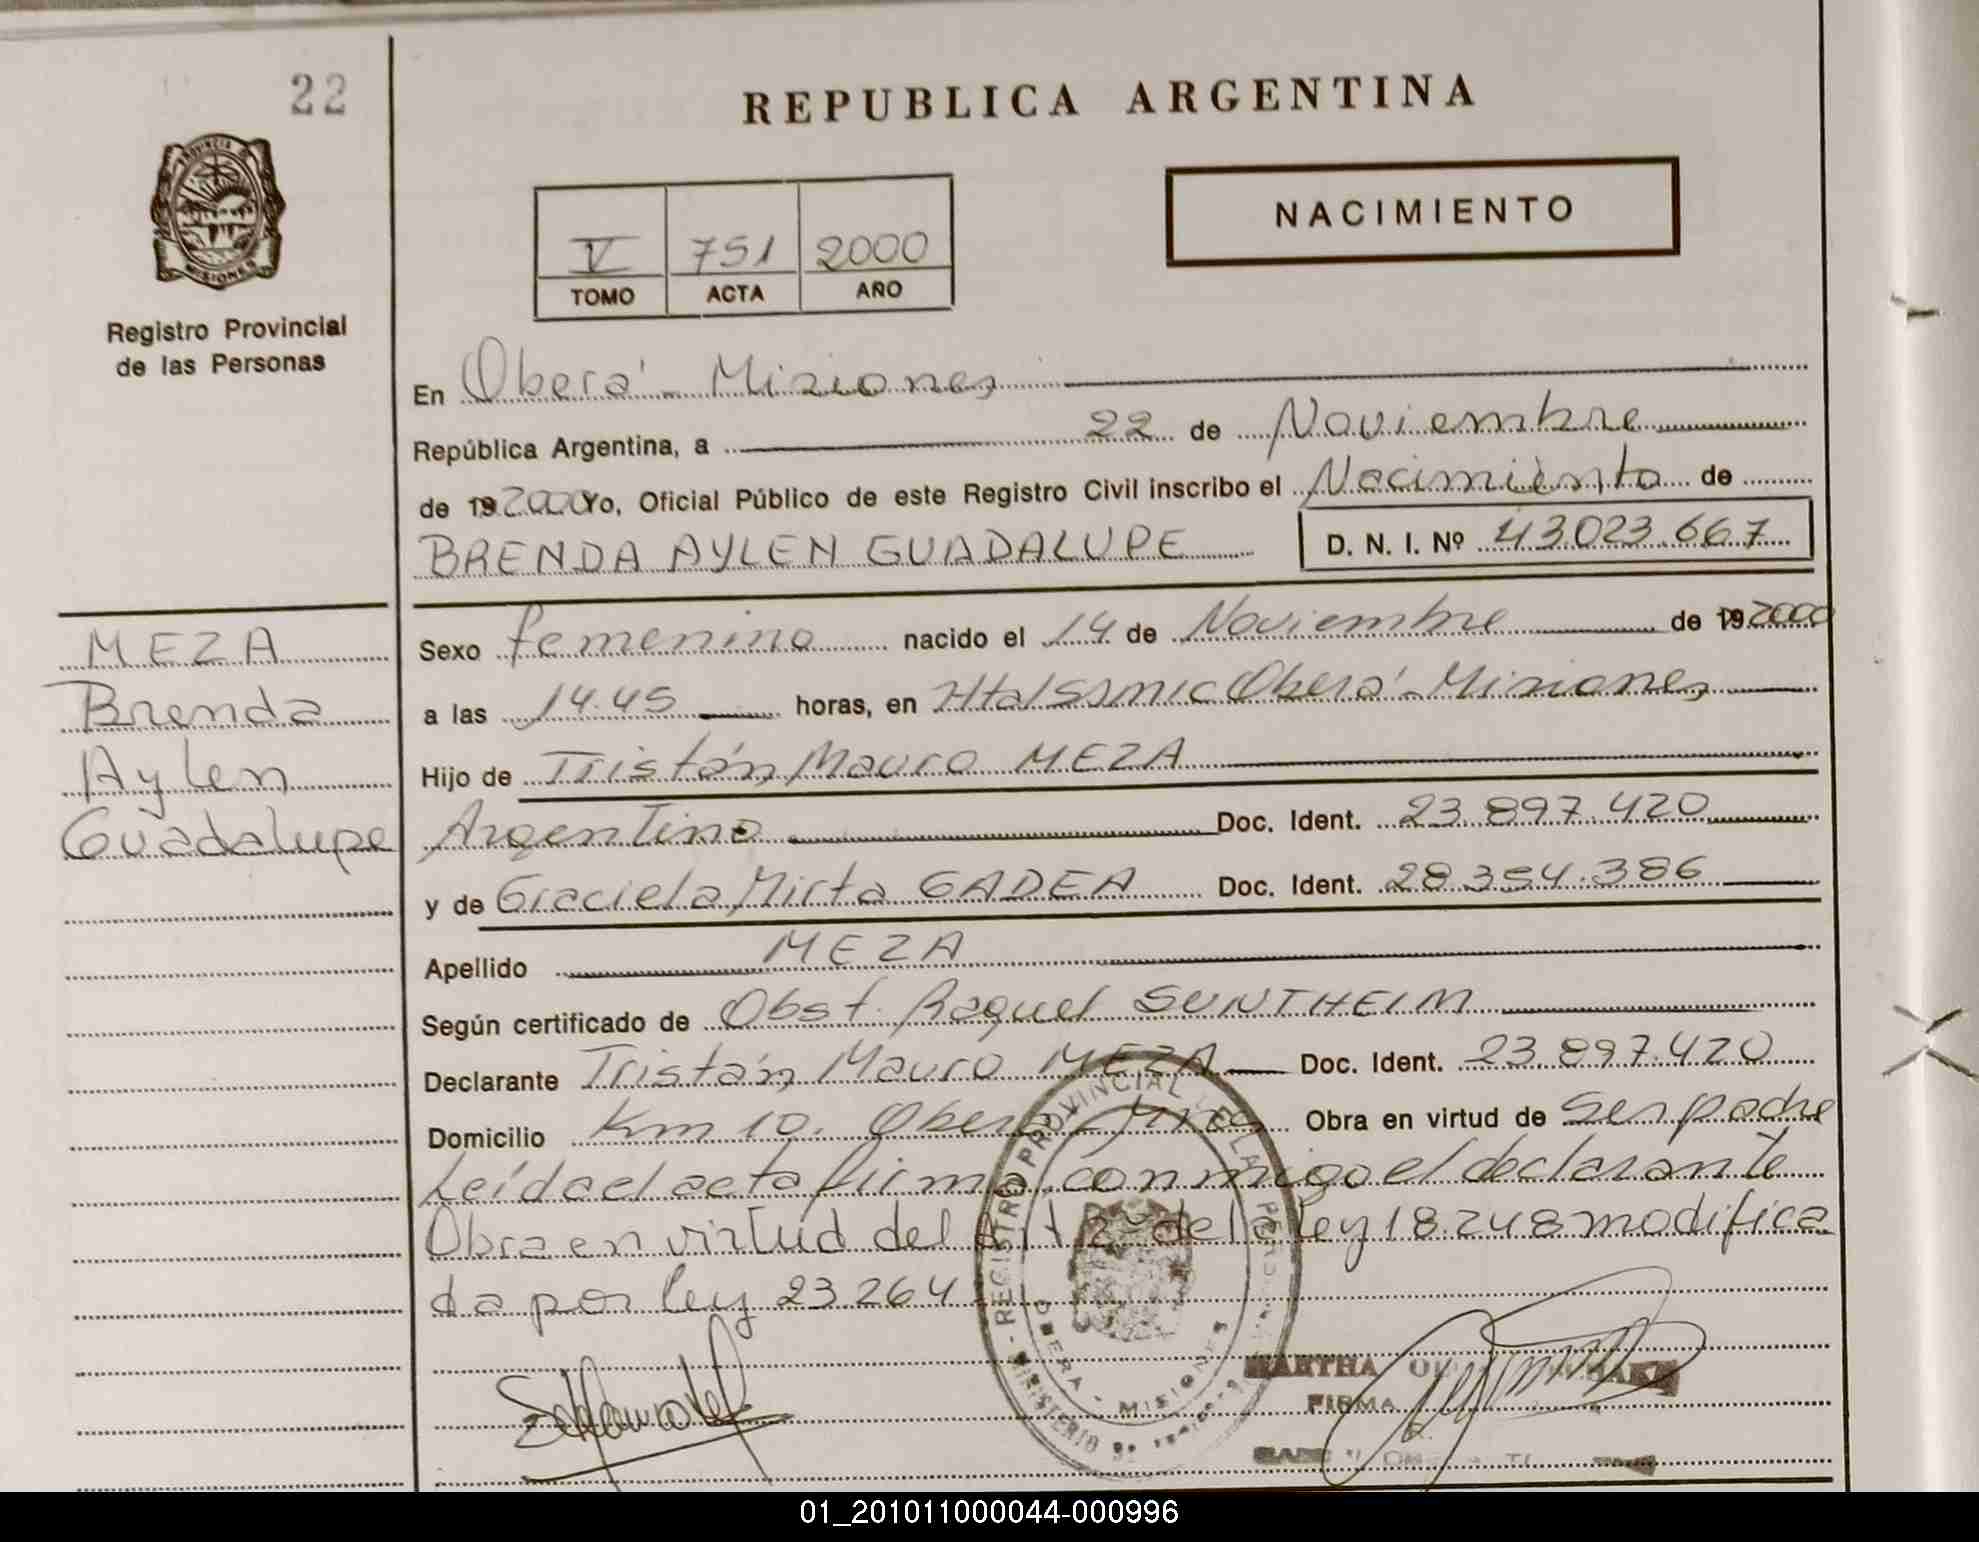 22
REPUBLICA ARGENTINA
NACIMIENTO
V 751 2000
TOMO ACTA AÑO
PROVINCIA DE
MISIONES
Registro Provincial
de las Personas
En Oberá - Misiones
República Argentina, a 22 de Noviembre
de 19 2000 Yo, Oficial Público de este Registro Civil inscribo el Nacimiento de
BRENDA AYLEN GUADALUPE D. N. I. Nº 43.023.667
MEZA
Brenda
Aylen
Guadalupe
Sexo femenino nacido el 14 de Noviembre de 19 2000
a las 14.45 horas, en Oberá - Misiones
Hijo de Tristán Mauro MEZA
Argentino Doc. Ident. 23.897.420
y de Graciela Mirta GADEA Doc. Ident. 28.354.386
Apellido MEZA
Según certificado de Obst. Raquel SUNTHEIM
Declarante Tristán Mauro MEZA Doc. Ident. 23.897.420
Domicilio Km 10. Oberá Obra en virtud de Ser padre
Leída el acta firma conmigo el declarante
Obra en virtud del Art 2º de la ley 18.248 modifica
da por ley 23.264
REGISTRO PROVINCIAL DE LAS
OBERA - MISIONES
MINISTERIO DE
MARTHA
FIRMA
01_201011000044-000996